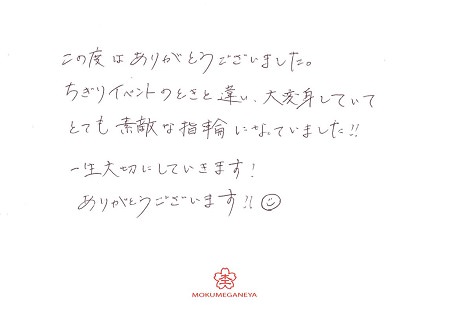 この度はありがとうございました。
ちぎりイベントのときと違い、大変身していて
とても素敵な指輪になっていました!!
一生大切にしていきます!
ありがとうございます!!
MOKUMEGANEYA